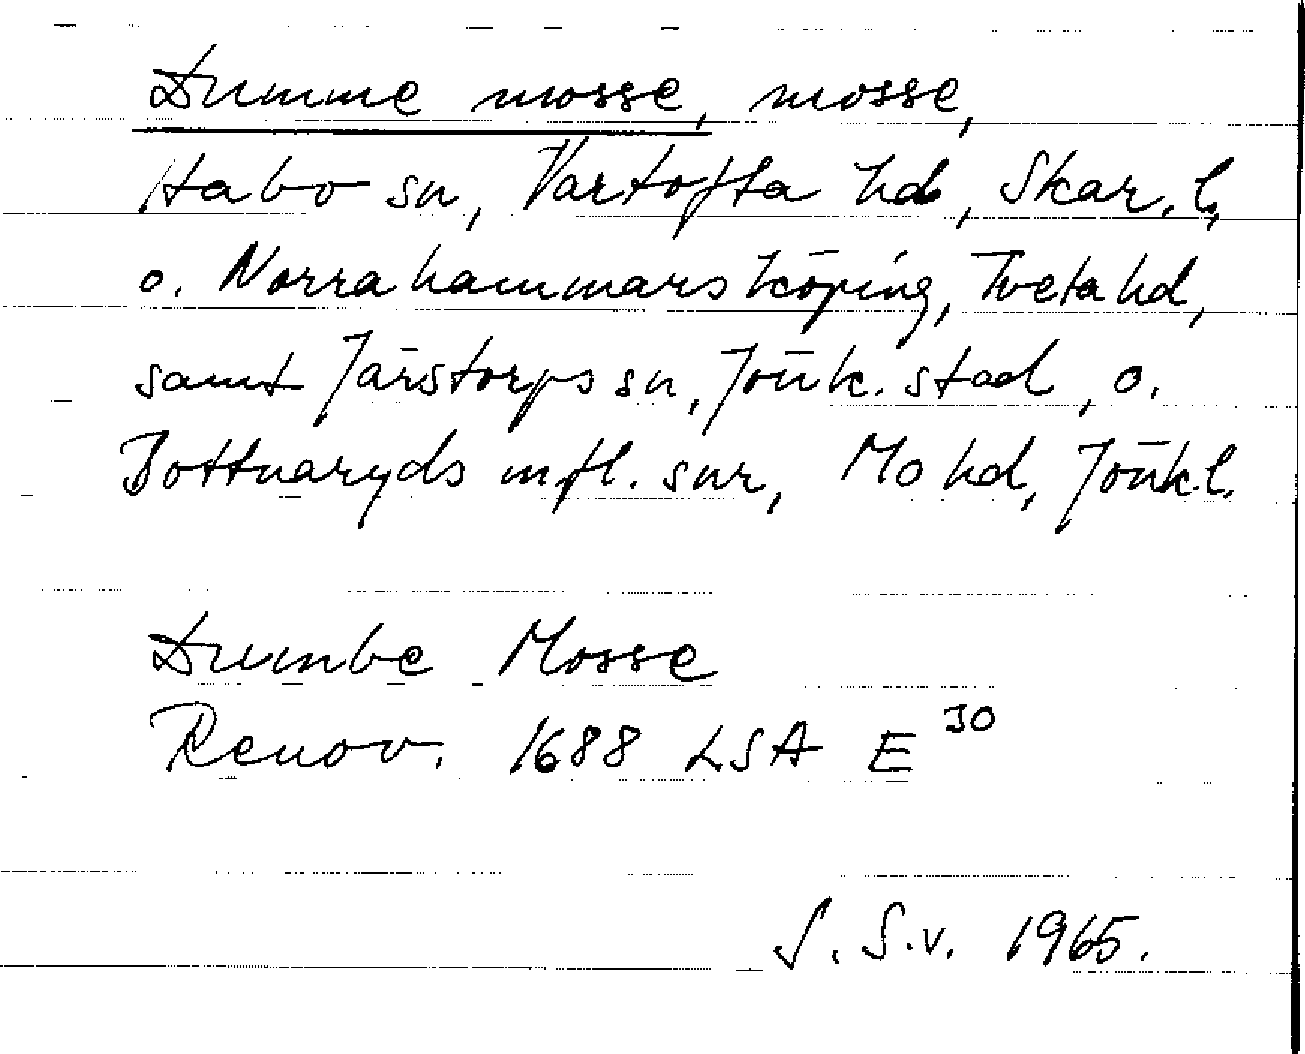 Dumme mosse, mosse,
Habo sn, Vartofta hd, Skar. l.
o. Norrahammars köping, Tveta hd,
samt Järstorps sn, Jönk. stad, o.
Bottnaryds m.fl. snr, Mo hd, Jönk. l.
Dumbe Mosse
Renov. 1688 LSA E 30
S. S.v. 1965.